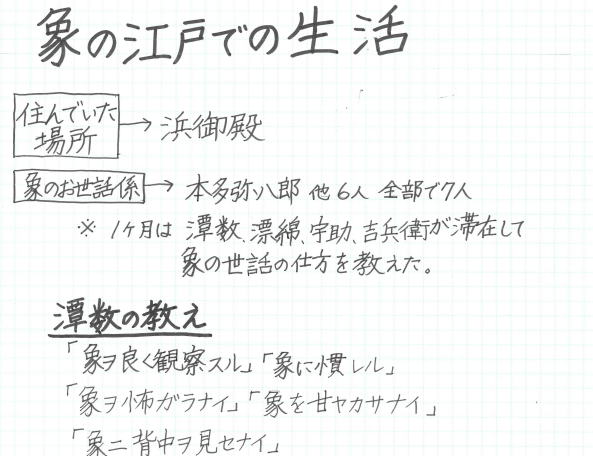 象の江戸での生活
住んでいた場所 → 浜御殿
象のお世話係 → 本多弥八郎 他6人 全部で7人
※ 1ヶ月は 潭数、漂綿、宇助、吉兵衛が滞在して
象の世話の仕方を教えた。
潭数の教え
「象ヲ良く観察スル」「象に慣レル」
「象ヲ怖ガラナイ」「象を甘ヤカサナイ」
「象ニ背中ヲ見セナイ」